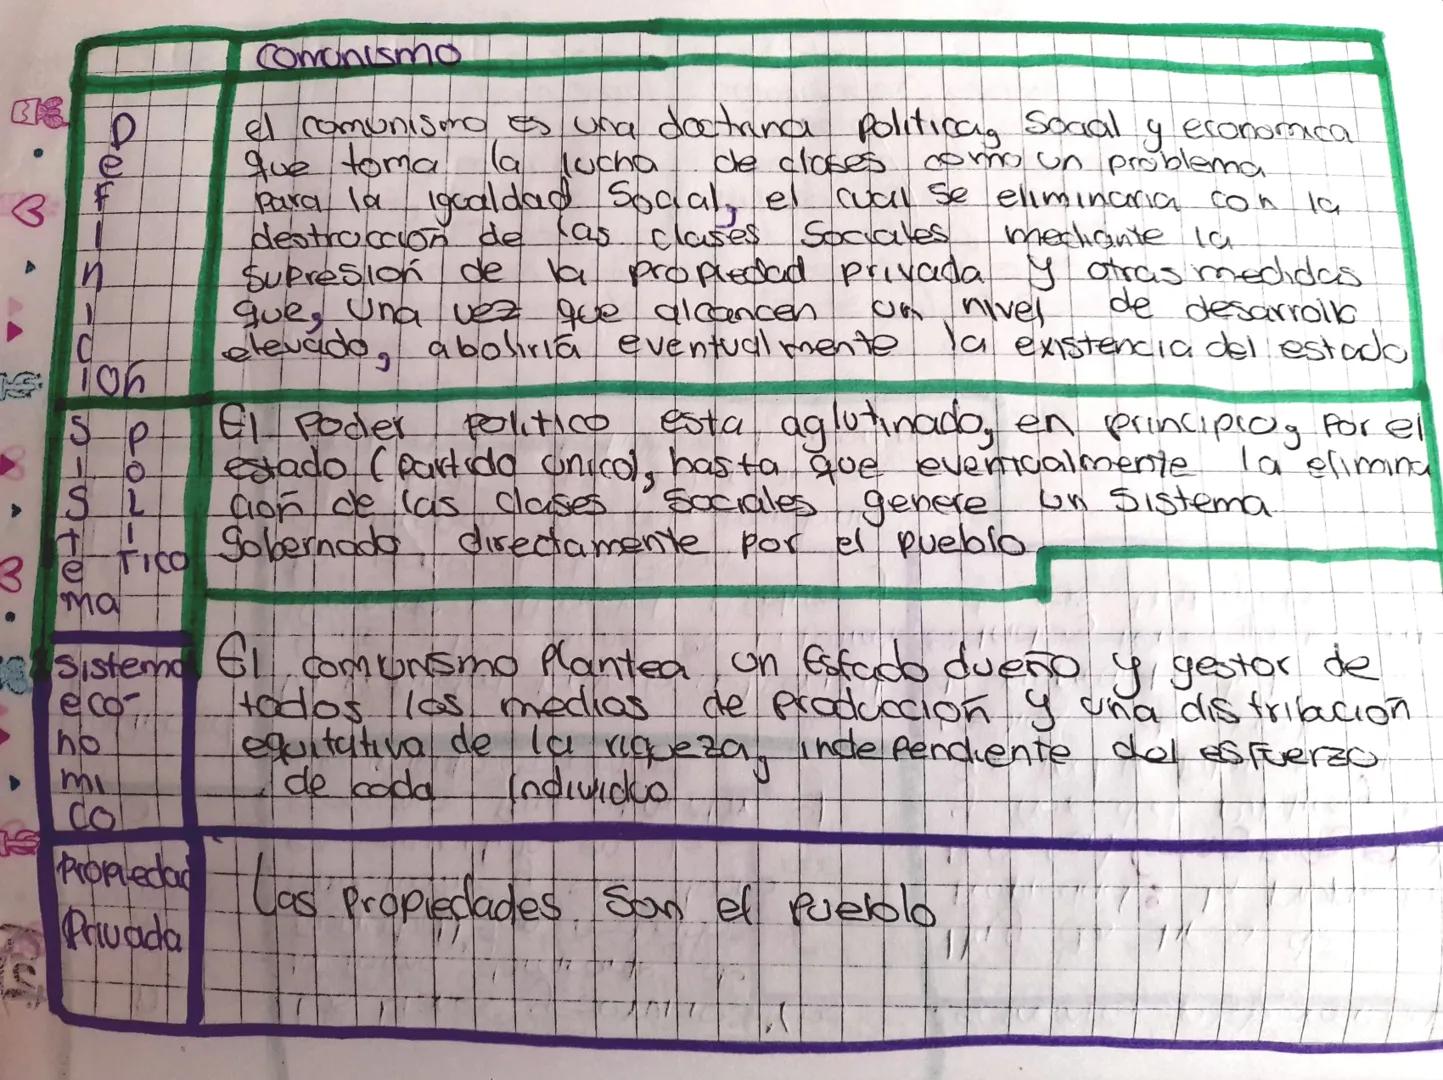 comunismo
Definición
el comunismo es una doctrina politica, Social y economica
que toma la lucha de clases como un problema
para la igualdad Social, el cual se eliminaria con la
destrucción de las clases Sociales mediante la
supresión de la propiedad privada y otras medidas
que, una vez que alcancen un nivel de desarrollo
elevado, aboliría eventualmente la existencia del estado
Sistema
POLITICO
El Poder politico esta aglutinado, en principio, Por el
estado (partido único), hasta que eventualmente la elimina
ción de las clases sociales genere un sistema
gobernado directamente por el pueblo
Sistema
eco-
no
mi
co
El comunismo Plantea un Estado dueño y gestor de
todos los medios de producción y una distribución
equitativa de la riqueza, independiente del esfuerzo
de cada individuo
Propiedad
Privada
Las propiedades son el pueblo